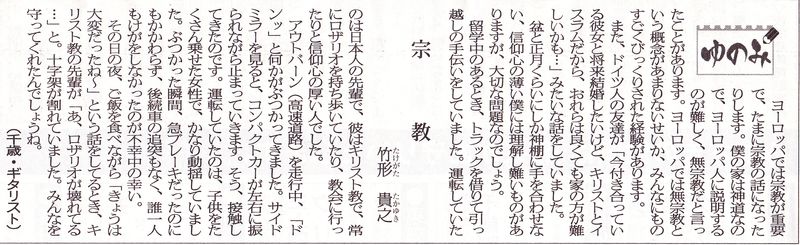 ゆのみ
ヨーロッパでは宗教が重要
で、たまに宗教の話になった
りします。僕の家は神道なの
で、ヨーロッパ人に説明する
のが難しく、無宗教だと言っ
たことがあります。ヨーロッパでは無宗教と
いう概念があまりないせいか、みんなにもの
すごくびっくりされた経験があります。
また、ドイツ人の友達が「今付き合ってい
る彼女と将来結婚したいけど、キリストとイ
スラムだから、おれらは良くても家の方が難
しいかも…」みたいな話をしていました。
盆と正月くらいにしか神棚に手を合わせな
い、信仰心の薄い僕には理解し難いものがあ
りますが、大切な問題なのでしょう。
留学中のあるとき、トラックを借りて引っ
越しの手伝いをしていました。運転していた
宗教
竹形 貴之
たけがた たかゆき
のは日本人の先輩で、彼はキリスト教で、常
にロザリオを持ち歩いていたり、教会に行っ
たりと信仰心の厚い人でした。
アウトバーン(高速道路)を走行中、「ド
ンッ」と何かがぶつかってきました。サイド
ミラーを見ると、コンパクトカーが左右に振
られながら止まっていきます。そう、接触し
てきたのです。運転していたのは、子供をた
くさん乗せた女性で、かなり動揺していまし
た。ぶつかった瞬間、急ブレーキだったのに
もかかわらず、後続車の追突もなく、誰一人
もけがをしなかったのが不幸中の幸い。
その日の夜、ご飯を食べながら「きょうは
大変だったね〜」という話をしてるとき、キ
リスト教の先輩が「あ、ロザリオが壊れてる
…」と。十字架が割れていました。みんなを
守ってくれたんでしょうね。
(千歳・ギタリスト)